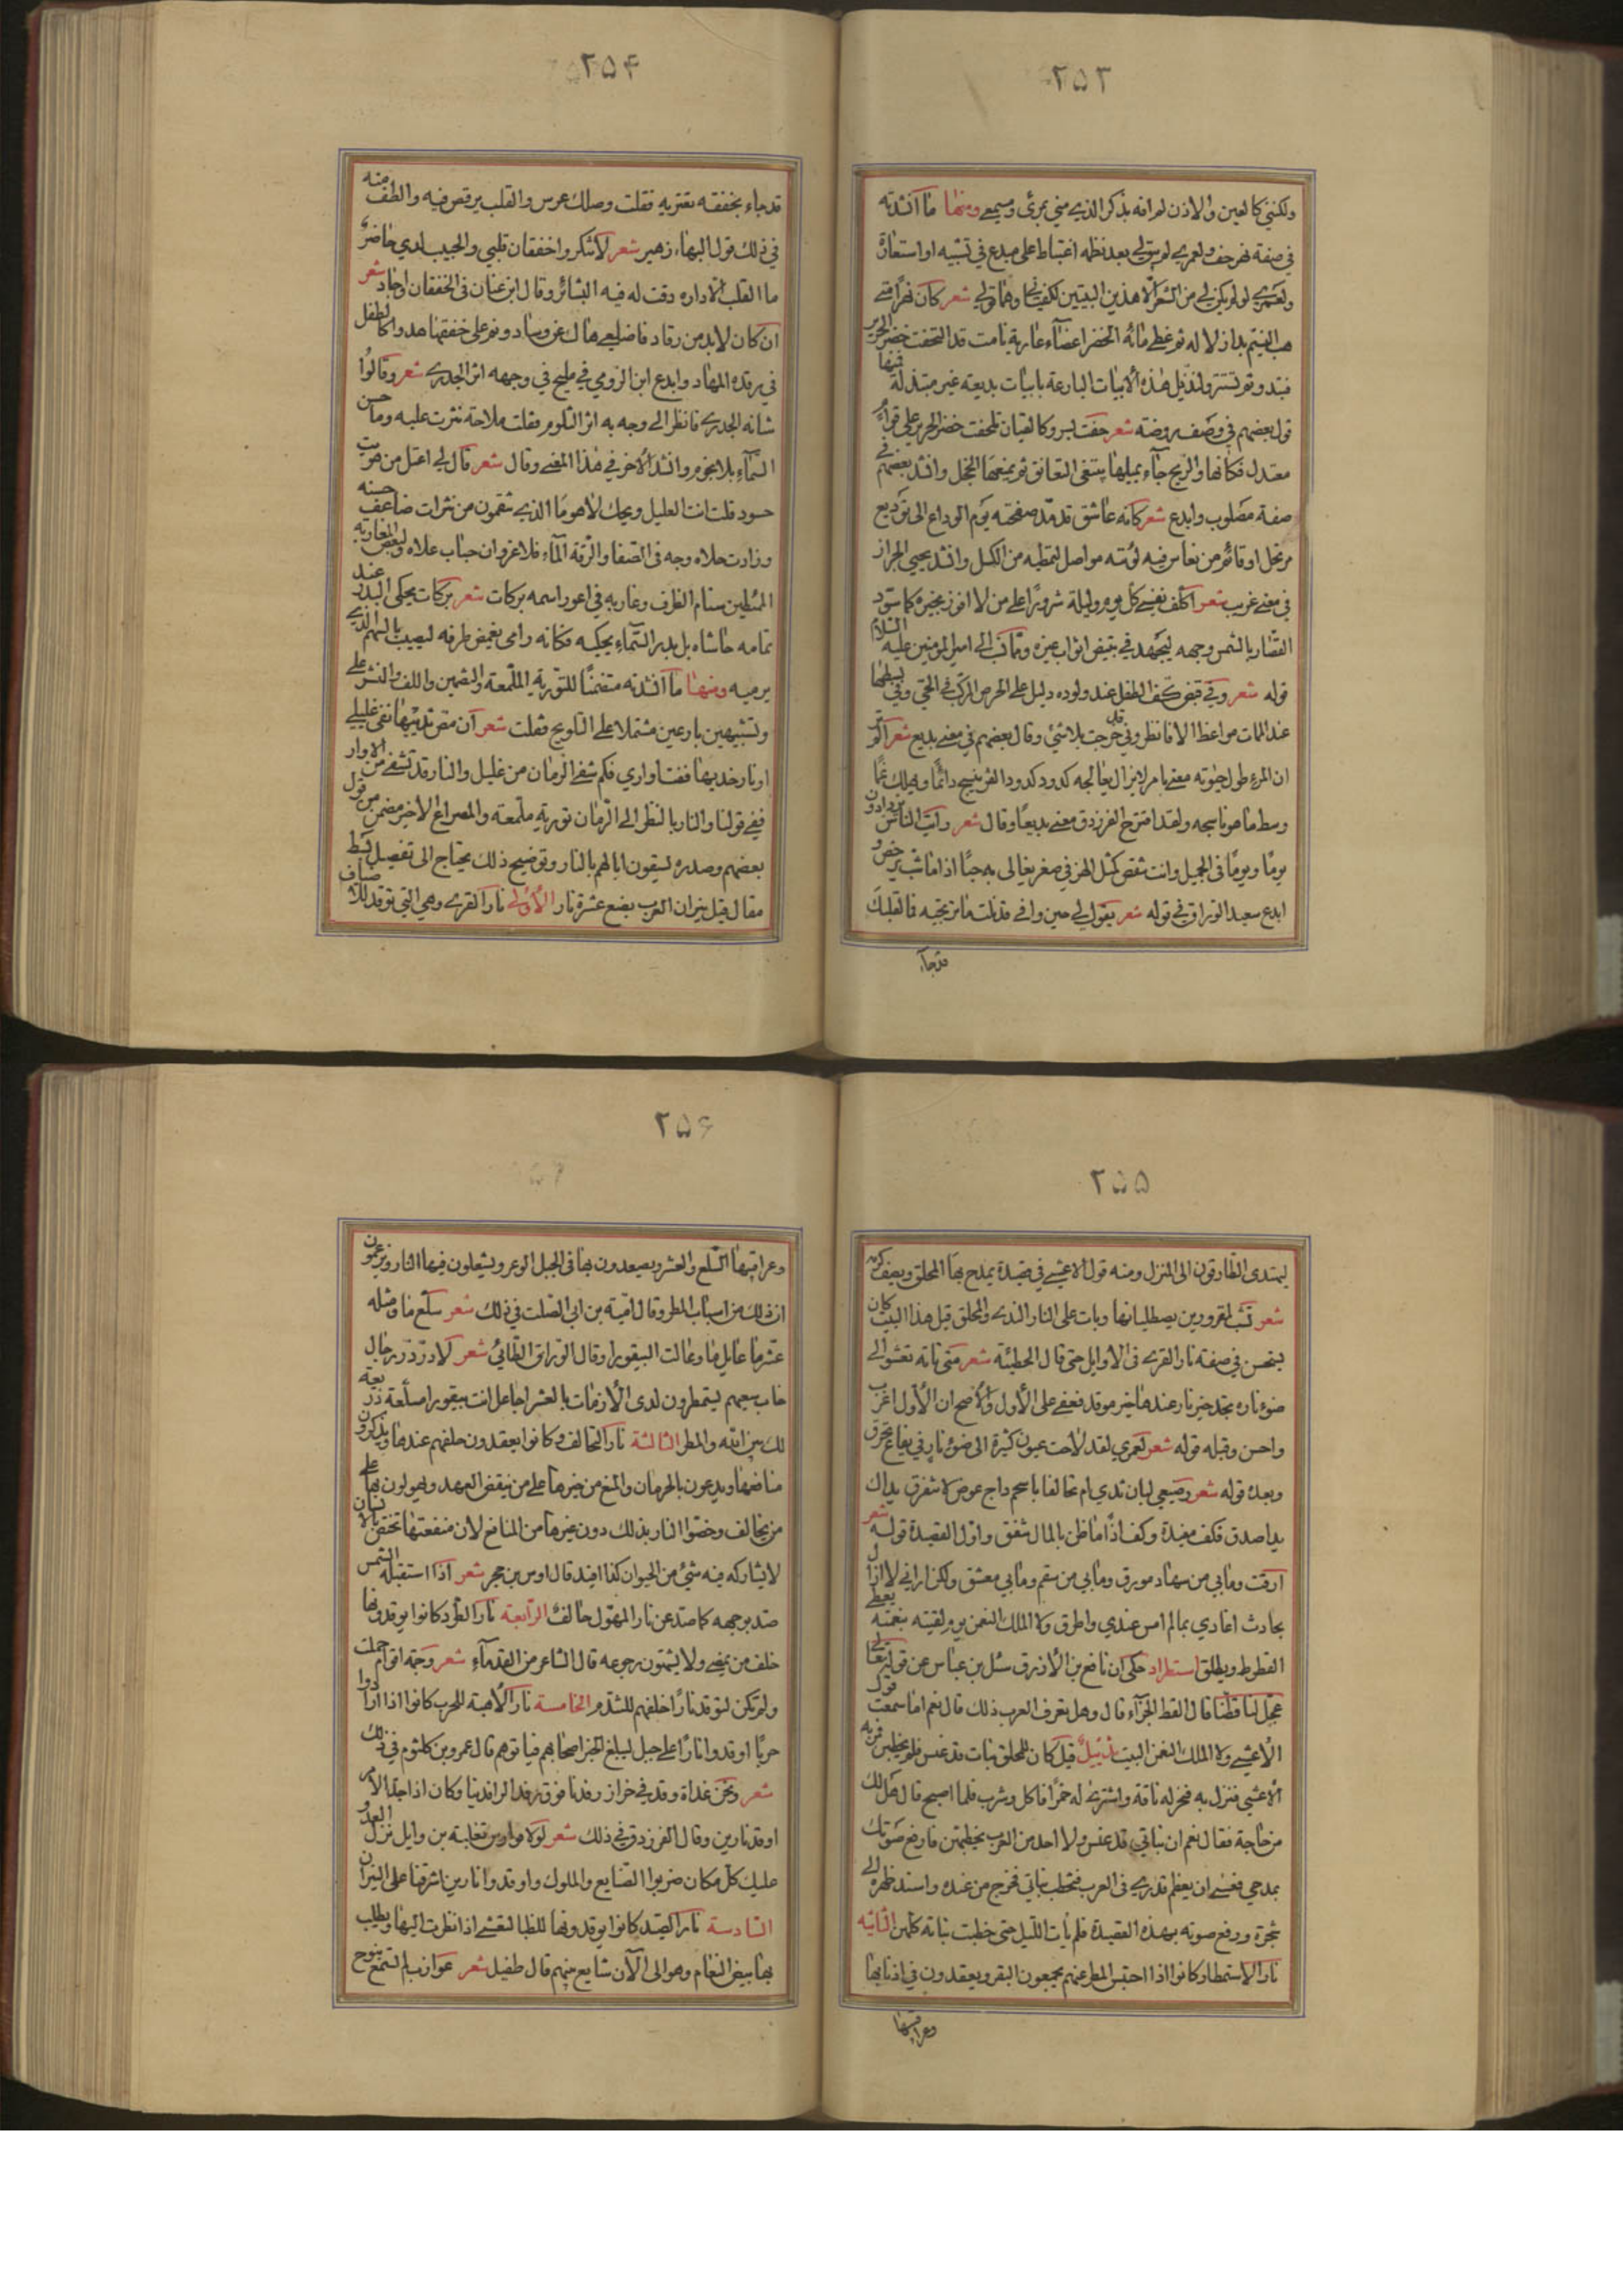 ٢٥٣
ولكنني كالعين والاذن لم افه بذكر الذي مني يرى ويسمع ومنها ما انشدته
في صفة نهر خف ولعمري لم يبق لي بعد نظمه اغتباط على مبدع في تشبيه او استعارة
ولعمري لو لم يكن لي من الشعر الا هذين البيتين لكفياني وهما قولي شعر كان نهرا متى
هب النسيم بدا زلاله ثم غطى مائه الخضر اعضاء عارية نامت قد التحفت خضر الحرير
فتبدو ثم تستتر ولنذيل هذه الابيات البارعة بابيات بديعة غير مبتذلة فمنها
قول بعضهم في وصف روضة شعر حفت بسرو كالقيان تلحفت خضر الحرير على قوام
معتدل فكانها والريح جآء يميلها يبتغي التعانق ثم يمنعها الخجل وانشد بعضهم في
صفة مصلوب وابدع شعر كانه عاشق قد مد صفحته يوم الوداع الى توديع
مرتحل او قائم من نعاس فيه لوثته مواصل لتمطيه من الكسل وانشد يحيى الجزار
في معنى غريب شعر اكلف نفسي كل يوم وليلة شرورا على من لا افوز بخيره كما سود
القصار بالشمس وجهه ليجهد في تبييض اثواب غيره ومما نسب الى امير المؤمنين عليه السلام
قوله شعر وفي قبض كف الطفل عند ولوده دليل على الحرص المركب في الحي وفي بسطها
عند الممات مواعظ الا فانظروني قد خرجت بلا شئ وقال بعضهم في معنى بديع شعر الم تر
ان المرء طول حيوته معنى بامر لا يزال يعالجه كدود كدود القز ينسج دائما ويهلك غما
وسط ما هو ناسجه ولقد اخترع الفرزدق معنى بديعا وقال شعر رايت الناس يزدادون
يوما ويوما في الجميل وانت تنقص كمثل الهر في صغر يغالى به حبا اذا ما شب يرخص و
ابدع سعيد الوراق في قوله شعر يقول لي حين وافى قد نلت ما ترتجيه فما لقلبك
قد جاء
٢٥٤
قد جاء بخفقه يعتريه فقلت وصلك عرس والقلب يرقص فيه والطف منه
في ذلك قول البهاء زهير شعر لا تنكروا خفقان قلبي والحبيب لدي حاضر
ما القلب الا داره دقت له فيه البشائر وقال ابن عنان في الخفقان واجاد شعر
ان كان لابد من رقاد فاضلعي هاك عن وساد ونم على خفقها هدوا كالطفل
في رقده المهاد وابدع ابن الرومي في مليح في وجهه اثر الجدري شعر وقالوا
شانه الجدري فانظر الى وجه به اثر الكلوم فقلت ملاحة نثرت عليه وما حسن
السمآء بلا نجوم وانشد الآخر في هذا المعنى وقال شعر قال لي اعتل من هويت
حسود قلت انت العليل ويحك لا هو ما الذي تنقمون من نثرات ضاعف حسنه
وزادت حلاه وجه في الصفا والرقة المآء فلا غرو ان حباب علاه ولبعض المغاربة
الممتطين سنام الظرف وغاربه في اعور اسمه بركات شعر بركات يحكى البدر عند
تمامه حاشاه بل بدر السمآء يحكيه فكانه رامى يغمض طرفه ليصيب بالسهم الذي
يرميه ومنها ما انشدته متضمنا للتورية الملمعة والتضمين واللف والنشر على
وتشبيهين بارعين مشتملا على التلويح وقلت شعر ان مص ثدييها نفى غليلي
او نار خديها فقتا واري فكم شفى الزمان من غليل والنار قد تشفي من الاوار
ففي قولنا والنار بالنظر الى الزمان تورية ملمعة والمصراع الاخير مضمن من قول
بعضهم وصدره ليسقون ابالهم بالنار وتوضيح ذلك يحتاج الى تفصيل بسط
مقال قيل نيران العرب بضع عشرة نار الأولى نار القرى وهي التي توقد للاضياف
٢٥٥
ليهتدى الطارقون الى المنزل ومنه قول الاعشى في قصيدة يمدح بها المحلق ويصف كرمه
شعر تشب لمقرورين يصطليانها وبات على النار الندى والمحلق قيل هذا البيت كان
يستحسن في صفة نار القرى في الاوايل حتى قال الحطيئة شعر متى تاته تعشو الى
ضوء ناره تجد خير نار عندها خير موقد فعفى على الأول والاصح ان الأول اغرب
واحسن وقبله قوله شعر لعمري لقد لاحت عيون كثيرة الى ضوء نار في يفاع تحرق
وبعده قوله شعر رضيعي لبان ثدي ام تحالفا باسحم داج عوض لا نتفرق يداك
يدا صدق فكف مفيدة وكف اذا ما ظن بالمال تنفق واول القصيدة قوله شعر
ارقت وما بي من سهاد مورق وما بي من سقم وما بي معشق ولكن اراني لا ازال
بحادث اغادي بما لم امس عندي واطرق ولا الملك النعمن يوم لقيته بنعمته يعطي
القطوط ويطلق استطراد حكى ان نافع بن الازرق سئل بن عباس عن قوله تعالى
عجل لنا قطنا قال القط الجزآء قال وهل تعرف العرب ذلك قال نعم اما سمعت قول
الأعشى ولا الملك النعمن البيت تذييل قيل كان للمحلق بنات قد عنسن فلم يخطبن فمر به
الأعشى فنزل به فنحر له ناقة واشترى له خمرا فاكل وشرب فلما اصبح قال هل لك
من حاجة فقال نعم ان بناتي قد عنسن ولا احد من العرب يخطبهن فارفع صوتك
بمدحي فعسى ان يعظم قدري في العرب فتخطب بناتي فخرج من عنده واسند ظهره الى
شجرة ورفع صوته بهذه القصيدة فلم يات الليل حتى خطبت بناته كلهن الثانية
نار الاستمطار كانوا اذا احتبس المطر عنهم يجمعون البقر ويعقدون في اذنابها
وعراقيبها
٢٥۶
وعراقيبها السلع والعشر ويصعدون بها في الجبل الوعر ويشعلون فيها النار ويزعمون
ان ذلك من اسباب المطر وقال امية بن ابي الصلت في ذلك شعر سلع ما ومثله
عشر ما عايل ما وعالت البيقورا وقال الوراق الطائي شعر لا در در رجال
خاب سعيهم يستمطرون لدى الأزمات بالعشر اجاعل انت بيقورا مسلعة ذريعة
لك بين الله والمطر الثالثة نار التحالف وكانوا يعقدون حلفهم عندها ويذكرون
منافعها ويدعون بالحرمان والمنع من خيرها على من ينقض العهد ويهولون بها على
من يخالف وخصوا النار بذلك دون غيرها من المنافع لان منفعتها تختص بالانسان
لا يشاركه فيه شئ من الحيوان كذا افيد قال اوس بن حجر شعر اذا استقبلته الشمس
صد بوجهه كما صد عن نار المهول حالف الرابعة نار الطرد كانوا يوقدونها
خلف من يمضي ولا يشتهون رجوعه قال الشاعر من القدمآء شعر وجمة اقوام حملت
ولم تكن لتوقد نارا خلفهم للتندم الخامسة نار الأهبة للحرب كانوا اذا ارادوا
حربا اوقدوا نارا على جبل ليبلغ الخبر اصحابهم فياتوهم قال عمرو بن كلثوم في ذلك
شعر ونحن غداة وقد في خزاز رفدنا فوق رفد الرافدينا وكان اذا جد الامر
اوقد نارين وقال الفرزدق في ذلك شعر لولا فوارس تغلبة بن وايل نزل العدو
عليك كل مكان ضربوا الصنايع والملوك واوقدوا نارين اشرقتا على النيران
السادسة نار الصيد كانوا يوقدونها للظبا لتغشى اذا نظرت اليها ويطلب
بها بيض النعام وهو الى الآن شايع منهم قال طفيل شعر عوازب لم تسمع نبوح